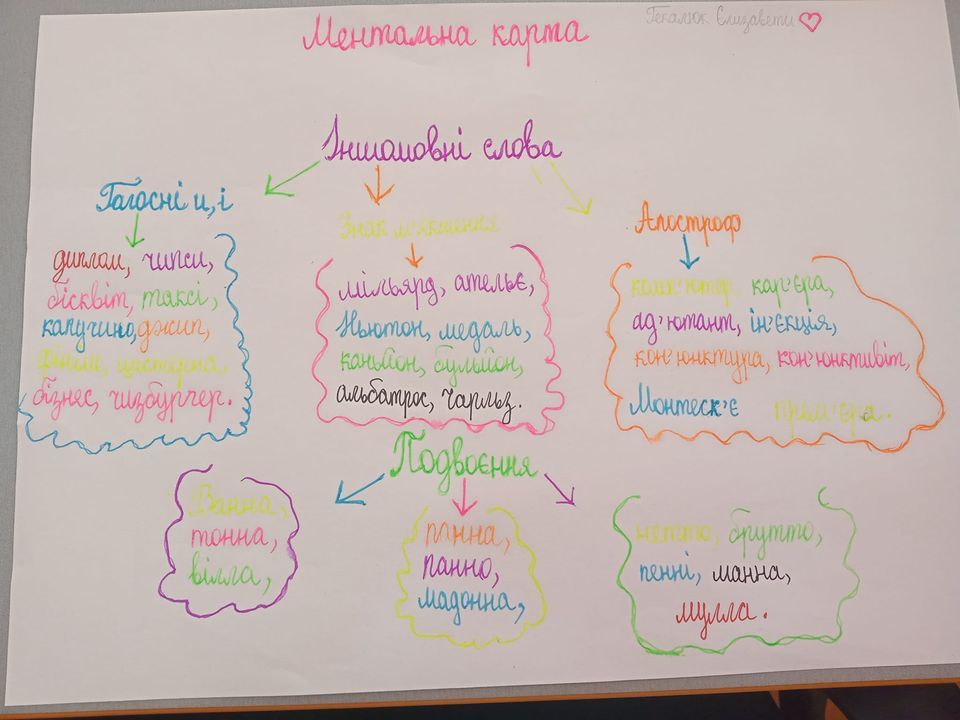 Ментальна карта
Гекалюк Єлизавети
Іншомовні слова
Голосні и, і
диплом, чипси,
бісквіт, таксі,
капучино, джип,
фініш, цистерна,
бізнес, чизбургер.
Знак м'якшення
мільярд, ательє,
Ньютон, медаль,
каньйон, бульйон,
альбатрос, Чарльз.
Апостроф
комп'ютер, кар'єра,
ад'ютант, ін'єкція,
кон'юнктура, кон'юнктивіт,
Монтеск'є прем'єра.
Подвоєння
Ванна,
тонна,
вілла,
панна,
панно,
мадонна,
нетто, брутто,
пенні, манна,
мулла.